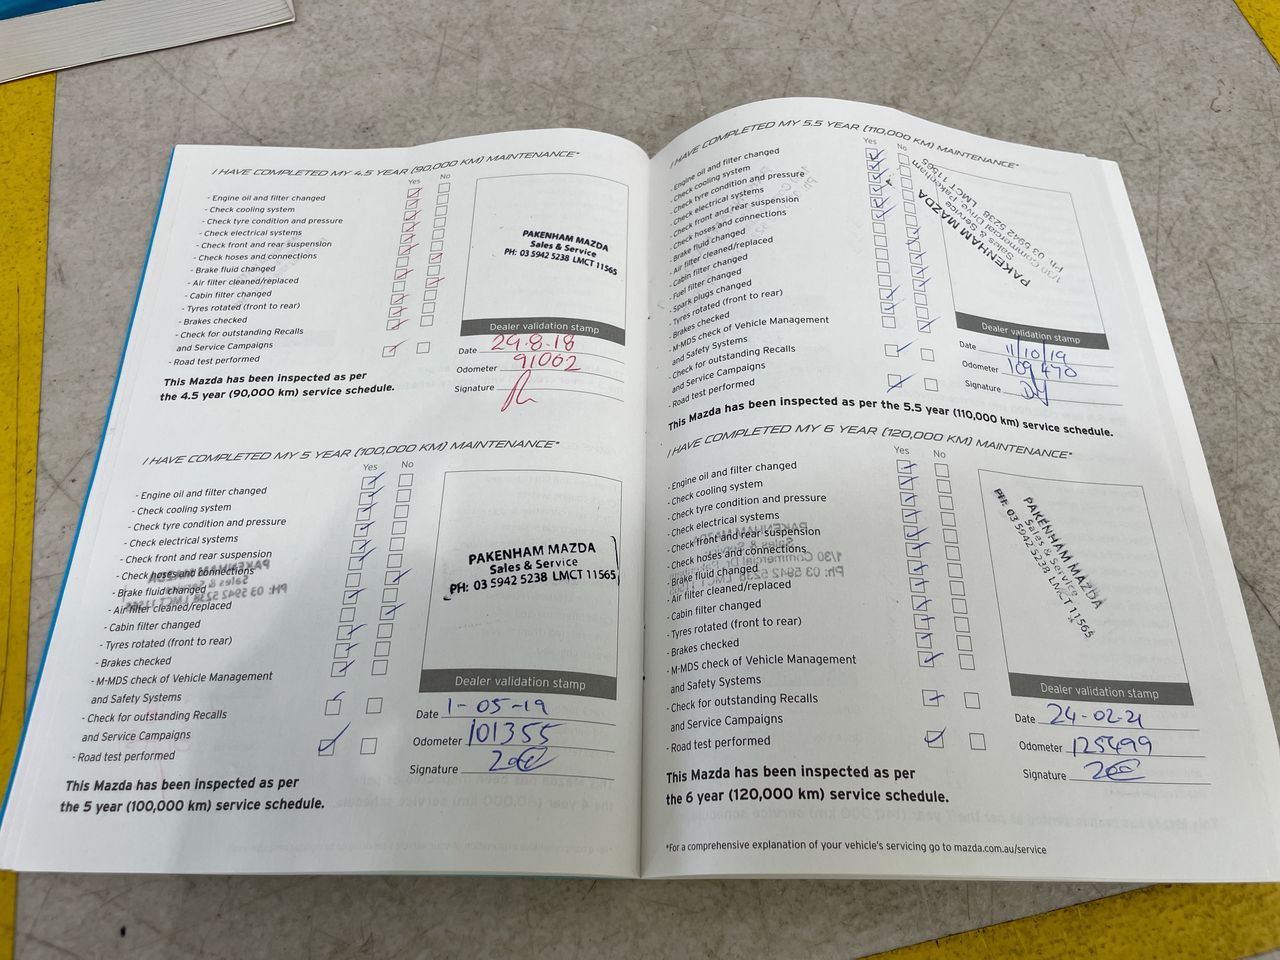 I HAVE COMPLETED MY 4.5 YEAR (90,000 KM) MAINTENANCE*
Yes No
- Engine oil and filter changed
- Check cooling system
- Check tyre condition and pressure
- Check electrical systems
- Check front and rear suspension
- Check hoses and connections
- Brake fluid changed
- Air filter cleaned/replaced
- Cabin filter changed
- Tyres rotated (front to rear)
- Brakes checked
- Check for outstanding Recalls
and Service Campaigns
- Road test performed
This Mazda has been inspected as per
the 4.5 year (90,000 km) service schedule.
PAKENHAM MAZDA
Sales & Service
PH: 03 5942 5238 LMCT 11565
Dealer validation stamp
Date 29-8-18
Odometer 91062
Signature
I HAVE COMPLETED MY 5 YEAR (100,000 KM) MAINTENANCE*
Yes No
- Engine oil and filter changed
- Check cooling system
- Check tyre condition and pressure
- Check electrical systems
- Check front and rear suspension
- Check hoses and connections
- Brake fluid changed
- Air filter cleaned/replaced
- Cabin filter changed
- Tyres rotated (front to rear)
- Brakes checked
- M-MDS check of Vehicle Management
and Safety Systems
- Check for outstanding Recalls
and Service Campaigns
- Road test performed
This Mazda has been inspected as per
the 5 year (100,000 km) service schedule.
PAKENHAM MAZDA
Sales & Service
PH: 03 5942 5238 LMCT 11565
Dealer validation stamp
Date 1-05-19
Odometer 101355
Signature
I HAVE COMPLETED MY 5.5 YEAR (110,000 KM) MAINTENANCE*
Yes No
- Engine oil and filter changed
- Check cooling system
- Check tyre condition and pressure
- Check electrical systems
- Check front and rear suspension
- Check hoses and connections
- Brake fluid changed
- Air filter cleaned/replaced
- Cabin filter changed
- Fuel filter changed
- Spark plugs changed
- Tyres rotated (front to rear)
- Brakes checked
- M-MDS check of Vehicle Management
and Safety Systems
- Check for outstanding Recalls
and Service Campaigns
- Road test performed
This Mazda has been inspected as per the 5.5 year (110,000 km) service schedule.
PAKENHAM MAZDA
Sales & Service
Commercial Drive Pakenham
Ph: 03 5942 5238 LMCT 11565
Dealer validation stamp
Date 11/10/19
Odometer 109470
Signature
I HAVE COMPLETED MY 6 YEAR (120,000 KM) MAINTENANCE*
Yes No
- Engine oil and filter changed
- Check cooling system
- Check tyre condition and pressure
- Check electrical systems
- Check front and rear suspension
- Check hoses and connections
- Brake fluid changed
- Air filter cleaned/replaced
- Cabin filter changed
- Tyres rotated (front to rear)
- Brakes checked
- M-MDS check of Vehicle Management
and Safety Systems
- Check for outstanding Recalls
and Service Campaigns
- Road test performed
This Mazda has been inspected as per
the 6 year (120,000 km) service schedule.
PAKENHAM MAZDA
Sales & Service
PH: 03 5942 5238 LMCT 11565
Dealer validation stamp
Date 24-02-21
Odometer 125499
Signature
*For a comprehensive explanation of your vehicle's servicing go to mazda.com.au/service